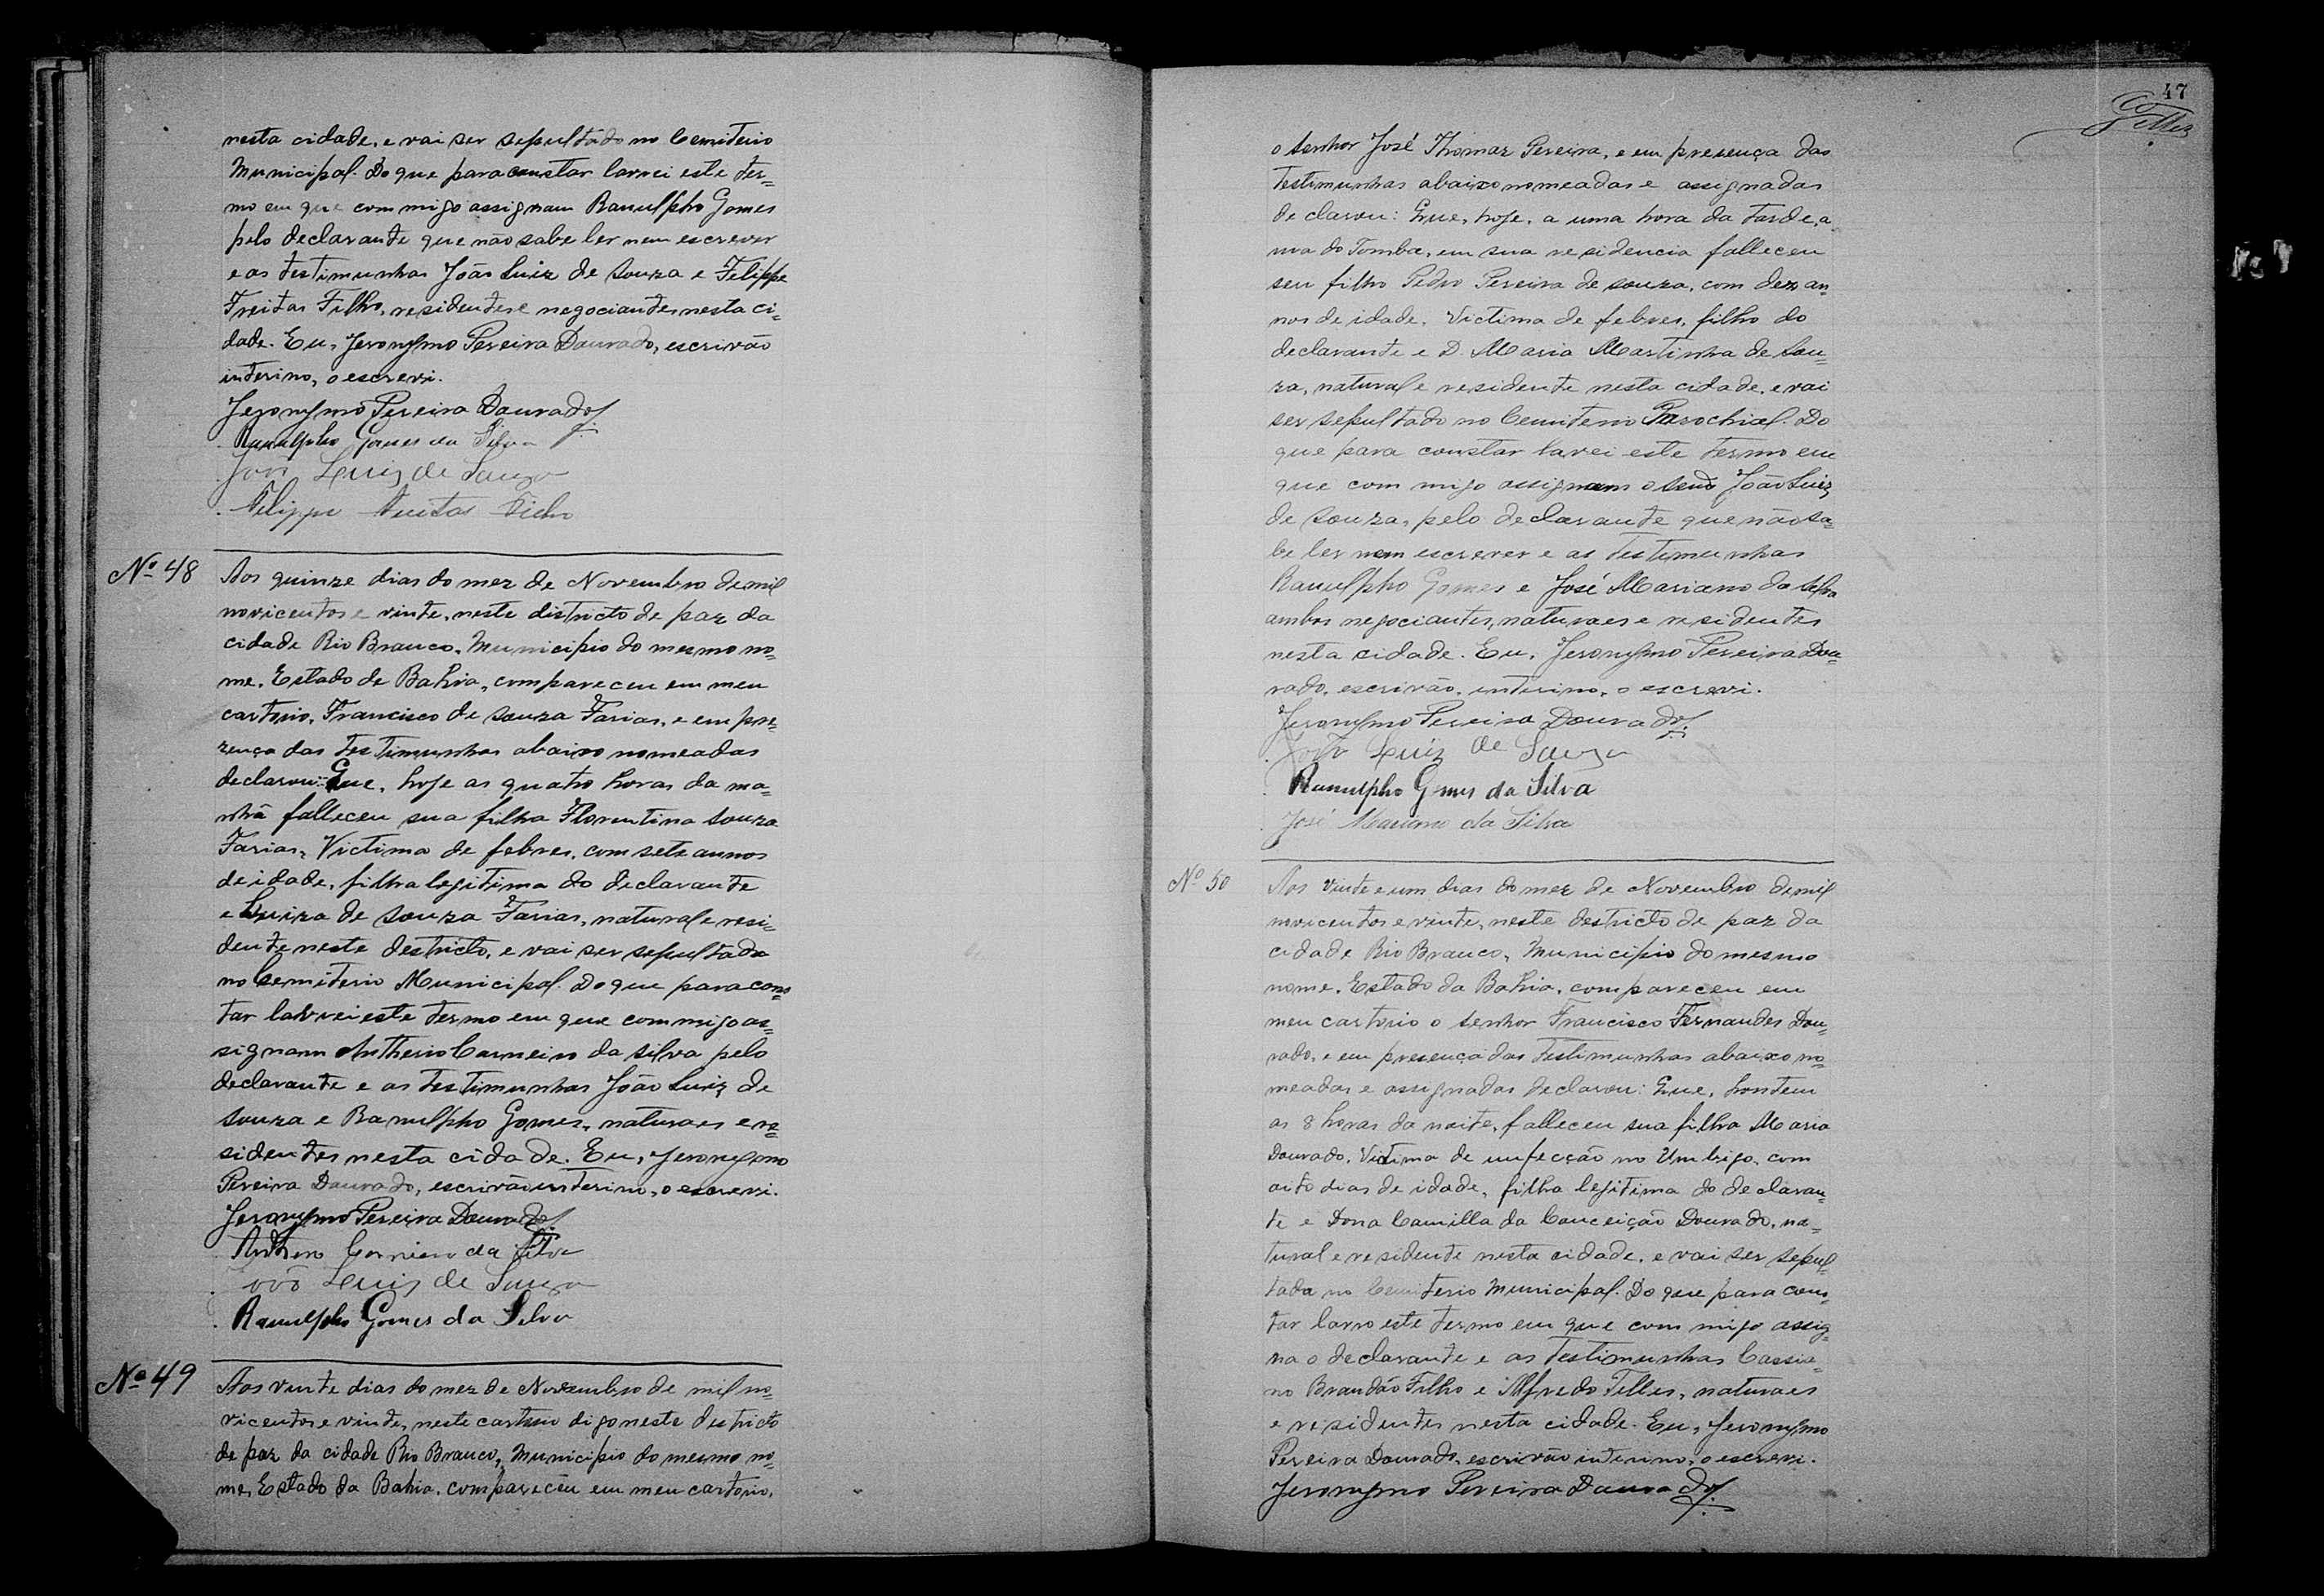 nesta cidade, e vai ser sepultado no Cemiterio
Municipal. Do que para constar lavrei este ter=
mo em que com migo assignam Ranulpho Gomes
pelo declarante que não sabe ler nem escrever
e as testimunhas João Luiz de Souza e Felippe
Freitas Filho, residentes e negociantes nesta ci=
dade. Eu, Jeronymo Pereira Dourado, escrivão
interino, o escrevi.
Jeronymo Pereira Dourado
Ranulpho Gomes da Silva
João Luiz de Souza
Felippe Freitas Filho
Nº 48
Aos quinze dias do mez de Novembro de mil
novicentos e vinte, neste districto de paz da
cidade Rio Branco, Municipio do mesmo no=
me, Estado de Bahia, compareceu em meu
cartorio, Francisco de Souza Farias, e em pre=
zença das testimunhas abaixo nomeadas
declarou: Que, hoje as quatro horas da ma=
nhã falleceu sua filha Florentina Souza
Farias, Victima de febres, com sete annos
de idade, filha legitima do declarante
e Luiza de Souza Farias, natural e resi=
dente neste destricto, e vai ser sepultada
no Cemiterio Municipal. Do que para cons=
tar lavrei este termo em que com migo as=
signam Antherio Carneiro da Silva pelo
declarante e as testimunhas João Luiz de
Souza e Ranulpho Gomes, naturaes e re=
sidentes nesta cidade. Eu, Jeronymo
Pereira Dourado, escrivão interino, o escrevi.
Jeronymo Pereira Dourado
Carneiro da Silva
João Luiz de Souza
Ranulpho Gomes da Silva
Nº 49
Aos vinte dias do mez de Novembro de mil no=
vicentos e vinte, neste cartorio digo neste destricto
de paz da cidade Rio Branco, Municipio do mesmo no=
me, Estado da Bahia, compareceu em meu cartorio,
47
Telles
o senhor José Thomaz Pereira, e em presença das
testimunhas abaixo nomeadas e assignadas
declarou: Que, hoje, a uma hora da tarde, a
rua do Tomba, em sua residencia falleceu
seu filho Pedro Pereira de Souza, com dez an=
nos de idade, Victima de febres, filho do
declarante e D. Maria Martinha de Sou=
za, natural e residente nesta cidade, e vai
ser sepultado no Cemiterio Parochial. Do
que para constar lavrei este termo em
que com migo assignam o senr João Luiz
de Souza, pelo declarante que não sa=
be ler nem escrever e as testimunhas
Ranulpho Gomes e José Mariano da Silva
ambos negociantes, naturaes e residentes
nesta cidade. Eu, Jeronymo Pereira Dou=
rado, escrivão, interino, o escrevi.
Jeronymo Pereira Dourado
João Luiz de Souza
Ranulpho Gomes da Silva
José Mariano da Silva
Nº 50
Aos vinte e um dias do mez de Novembro de mil
novicentos e vinte, neste destricto de paz da
cidade Rio Branco, Municipio do mesmo
nome, Estado da Bahia, compareceu em
meu cartorio o senhor Francisco Fernandes Dou=
rado, e em presença das testimunhas abaixo no=
meadas e assignadas declarou: Que, hontem
as 8 horas da noite, falleceu sua filha Maria
Dourado, Victima de unfecção no Umbigo, com
oito dias de idade, filha legitima do declaran=
te e Dona Camilla da Conceição Dourado, na=
tural e residente nesta cidade, e vai ser sepul=
tada no Cemiterio Municipal. Do que para cons=
tar lavro este termo em que com migo assig=
na o declarante e as testimunhas Cassia=
no Brandão Filho e Alfredo Telles, naturaes
e residentes nesta cidade. Eu, Jeronymo
Pereira Dourado, escrivão interino, o escrevi.
Jeronymo Pereira Dourado